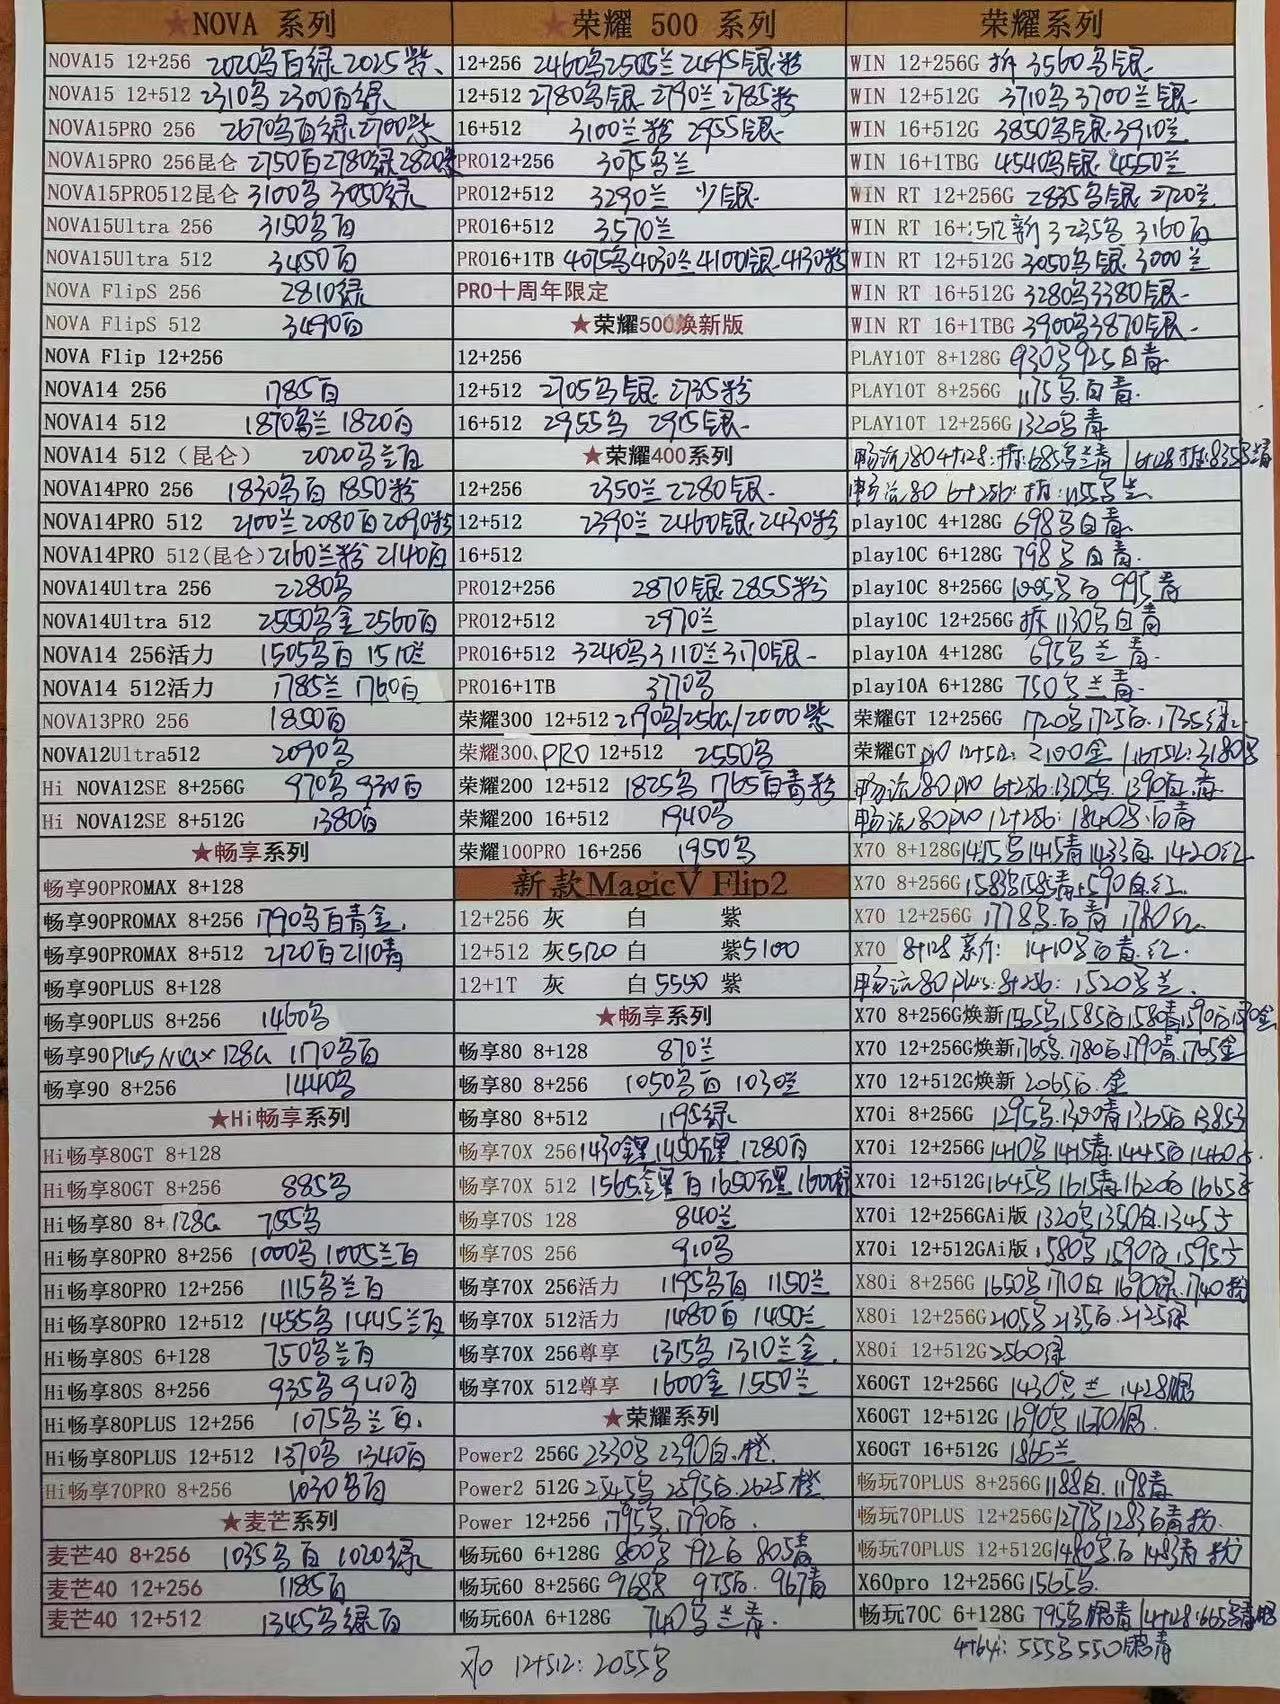 ★NOVA 系列
NOVA15 12+256 2020乌白绿 2025紫、
NOVA15 12+512 2310乌 2300白绿
NOVA15PRO 256 2670乌白绿 2700紫
NOVA15PRO 256昆仑 2750白2780绿2820紫
NOVA15PRO512昆仑 3100乌 3050绿
NOVA15Ultra 256 3150乌白
NOVA15Ultra 512 3450白
NOVA FlipS 256 2810绿
NOVA FlipS 512 3490白
NOVA Flip 12+256
NOVA14 256 1785白
NOVA14 512 1870乌兰 1820白
NOVA14 512（昆仑） 2020乌兰白
NOVA14PRO 256 1830乌白 1850粉
NOVA14PRO 512 2100兰2080白2090粉
NOVA14PRO 512(昆仑) 2160兰粉 2140白
NOVA14Ultra 256 2280乌
NOVA14Ultra 512 2550乌金 2560白
NOVA14 256活力 1505乌白 1510兰
NOVA14 512活力 1785兰 1760白
NOVA13PRO 256 1850白
NOVA12Ultra512 2090乌
Hi NOVA12SE 8+256G 970乌 930白
Hi NOVA12SE 8+512G 1380白
★畅享系列
畅享90PROMAX 8+128
畅享90PROMAX 8+256 1790乌白青金.
畅享90PROMAX 8+512 2120白2110青
畅享90PLUS 8+128
畅享90PLUS 8+256 1460乌
畅享90PLUS Max 128G 1170乌白
畅享90 8+256 1440乌
★Hi畅享系列
Hi畅享80GT 8+128
Hi畅享80GT 8+256 885乌
Hi畅享80 8+128G 755乌
Hi畅享80PRO 8+256 1000乌 1005兰白
Hi畅享80PRO 12+256 1115乌兰白
Hi畅享80PRO 12+512 1455乌 1445兰白
Hi畅享80S 6+128 750乌兰白
Hi畅享80S 8+256 935乌 940白
Hi畅享80PLUS 12+256 1075乌兰白.
Hi畅享80PLUS 12+512 1370乌 1340白
Hi畅享70PRO 8+256 1030乌白
★麦芒系列
麦芒40 8+256 1035乌白 1020绿
麦芒40 12+256 1185白
麦芒40 12+512 1345乌绿白
★荣耀 500 系列
12+256 2460乌2505兰 2495银粉
12+512 2780乌银 2790兰 2785粉
16+512 3100兰粉 2955银
PRO12+256 3075乌兰
PRO12+512 3290兰 少银.
PRO16+512 3570兰
PRO16+1TB 4075乌4030兰4100银.4130粉
PRO十周年限定
★荣耀500焕新版
12+256
12+512 2705乌银. 2735粉
16+512 2955乌 2915银.
★荣耀400系列
12+256 2350兰 2280银.
12+512 2390兰 2460银.2430粉
16+512
PRO12+256 2870银 2855粉
PRO12+512 2970兰
PRO16+512 3240乌3110兰3170银.
PRO16+1TB 3770乌
荣耀300 12+512 2190乌/256G/2000紫
荣耀300、PRO 12+512 2550乌
荣耀200 12+512 1825乌 1765白青粉
荣耀200 16+512 1940乌
荣耀100PRO 16+256 1950乌
新款MagicV Flip2
12+256 灰 白 紫
12+512 灰5120 白 紫5100
12+1T 灰 白5550 紫
★畅享系列
畅享80 8+128 870兰
畅享80 8+256 1050乌白 1030兰
畅享80 8+512 1195绿
畅享70X 256 1430金黑 1450石黑 1280白
畅享70X 512 1565金黑白 1650石黑 1600
畅享70S 128 840兰
畅享70S 256 910乌
畅享70X 256活力 1195乌白 1150兰
畅享70X 512活力 1480白 1450兰
畅享70X 256尊享 1315乌 1310兰金.
畅享70X 512尊享 1600金 1550兰
★荣耀系列
Power2 256G 2330乌 2390白.橙
Power2 512G 2545乌 2595白.2625橙
Power 12+256 1795乌.1790白.
畅玩60 6+128G 800乌 792白 805青
畅玩60 8+256G 968乌 975白. 967青
畅玩60A 6+128G 740乌兰青.
X70 12+512: 2055乌
荣耀系列
WIN 12+256G 拆 3560乌银.
WIN 12+512G 3710乌 3700兰银.
WIN 16+512G 3850乌银.3910兰
WIN 16+1TBG 4540乌银.4550兰
WIN RT 12+256G 2835乌银 2720兰
WIN RT 16+512新 3235乌 3160白
WIN RT 12+512G 3050乌银.3000兰
WIN RT 16+512G 3280乌3380银.
WIN RT 16+1TBG 3900乌3870银.
PLAY10T 8+128G 930乌925白青
PLAY10T 8+256G 1175乌白青.
PLAY10T 12+256G 1320乌青
畅玩80 4+128:拆:685乌兰青 / 6+128拆:835乌兰青
畅玩80 6+256:拆:1155乌兰.
play10C 4+128G 698乌白青
play10C 6+128G 798乌白青.
play10C 8+256G 1005乌白 995青
play10C 12+256G 拆1130乌白青
play10A 4+128G 695乌兰青.
play10A 6+128G 750乌兰青.
荣耀GT 12+256G 1720乌1725白.1735绿
荣耀GT pro 12+512: 3100金 / 16+512:3180乌
畅玩80pro 6+256:1305乌.1390白.青
畅玩80pro 12+256: 1840乌.白青
X70 8+128G 1415乌1415青1433白.1420红
X70 8+256G 1583乌1585青1590白.红.
X70 12+256G 1778乌.白青 1780红
X70 8+128 1410乌白青.红.
畅玩80plus:8+256: 1520乌兰.
X70 8+256G焕新1565乌1585白1580青
X70 12+256G焕新1765乌.1780白.1790青.1765金
X70 12+512G焕新 2065白.金
X70i 8+256G 1295乌.1300青1365白.1385
X70i 12+256G 1410乌1415青.1445白1460
X70i 12+512G1645乌1615青.1620白1665
X70i 12+256GAi版 1320乌1350白.1345
X70i 12+512GAi版 1580乌.1590白.1595
X80i 8+256G 1650乌1710白 1690绿.1740粉
X80i 12+256G2105乌2135白.2125绿
X80i 12+512G2560绿
X60GT 12+256G 1430乌兰 1428银
X60GT 12+512G 1690乌1670银.
X60GT 16+512G 1865兰
畅玩70PLUS 8+256G1188白.1198青
畅玩70PLUS 12+256G1277乌1283白青粉.
畅玩70PLUS 12+512G1480乌.白1483青粉
X60pro 12+256G1565乌.
畅玩70C 6+128G 795乌银青/4+128:665乌青银
4+64: 555乌550银青